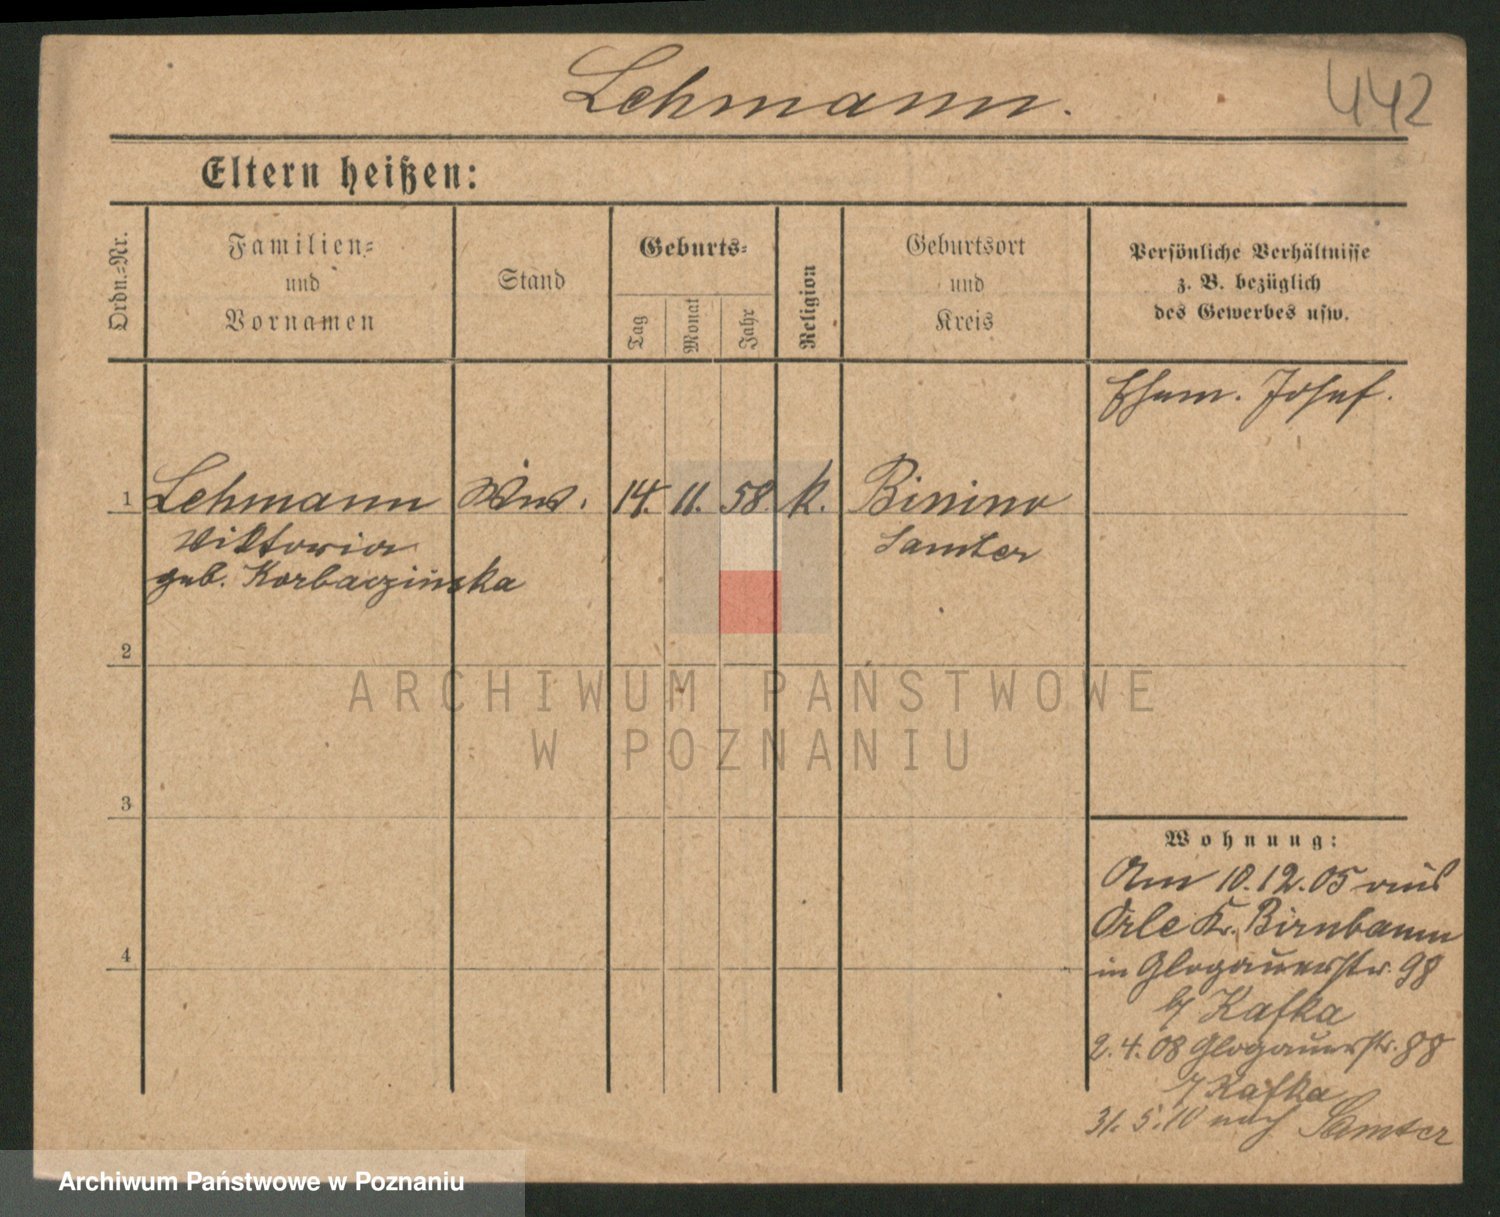 Lehmann.
442
Eltern heißen:
Ordn.=Nr.
Familien=
und
Vornamen
Stand
Geburts=
Tag
Monat
Jahr
Religion
Geburtsort
und
Kreis
Persönliche Verhältnisse
z. B. bezüglich
des Gewerbes usw.
Ehem. Josef.
1 Lehmann Wwe. 14. 11. 58. k. Binino
Viktoria Samter
geb. Korbaczińska
2
3
4
Wohnung:
Am 10.12.05 aus
Orle Kr. Birnbaum
in Glogauerstr. 98
b/ Kafka
2.4.08 Glogauerstr. 88
b/ Kafka
31.5.10 nach Samter
ARCHIWUM PAŃSTWOWE
W POZNANIU
Archiwum Państwowe w Poznaniu